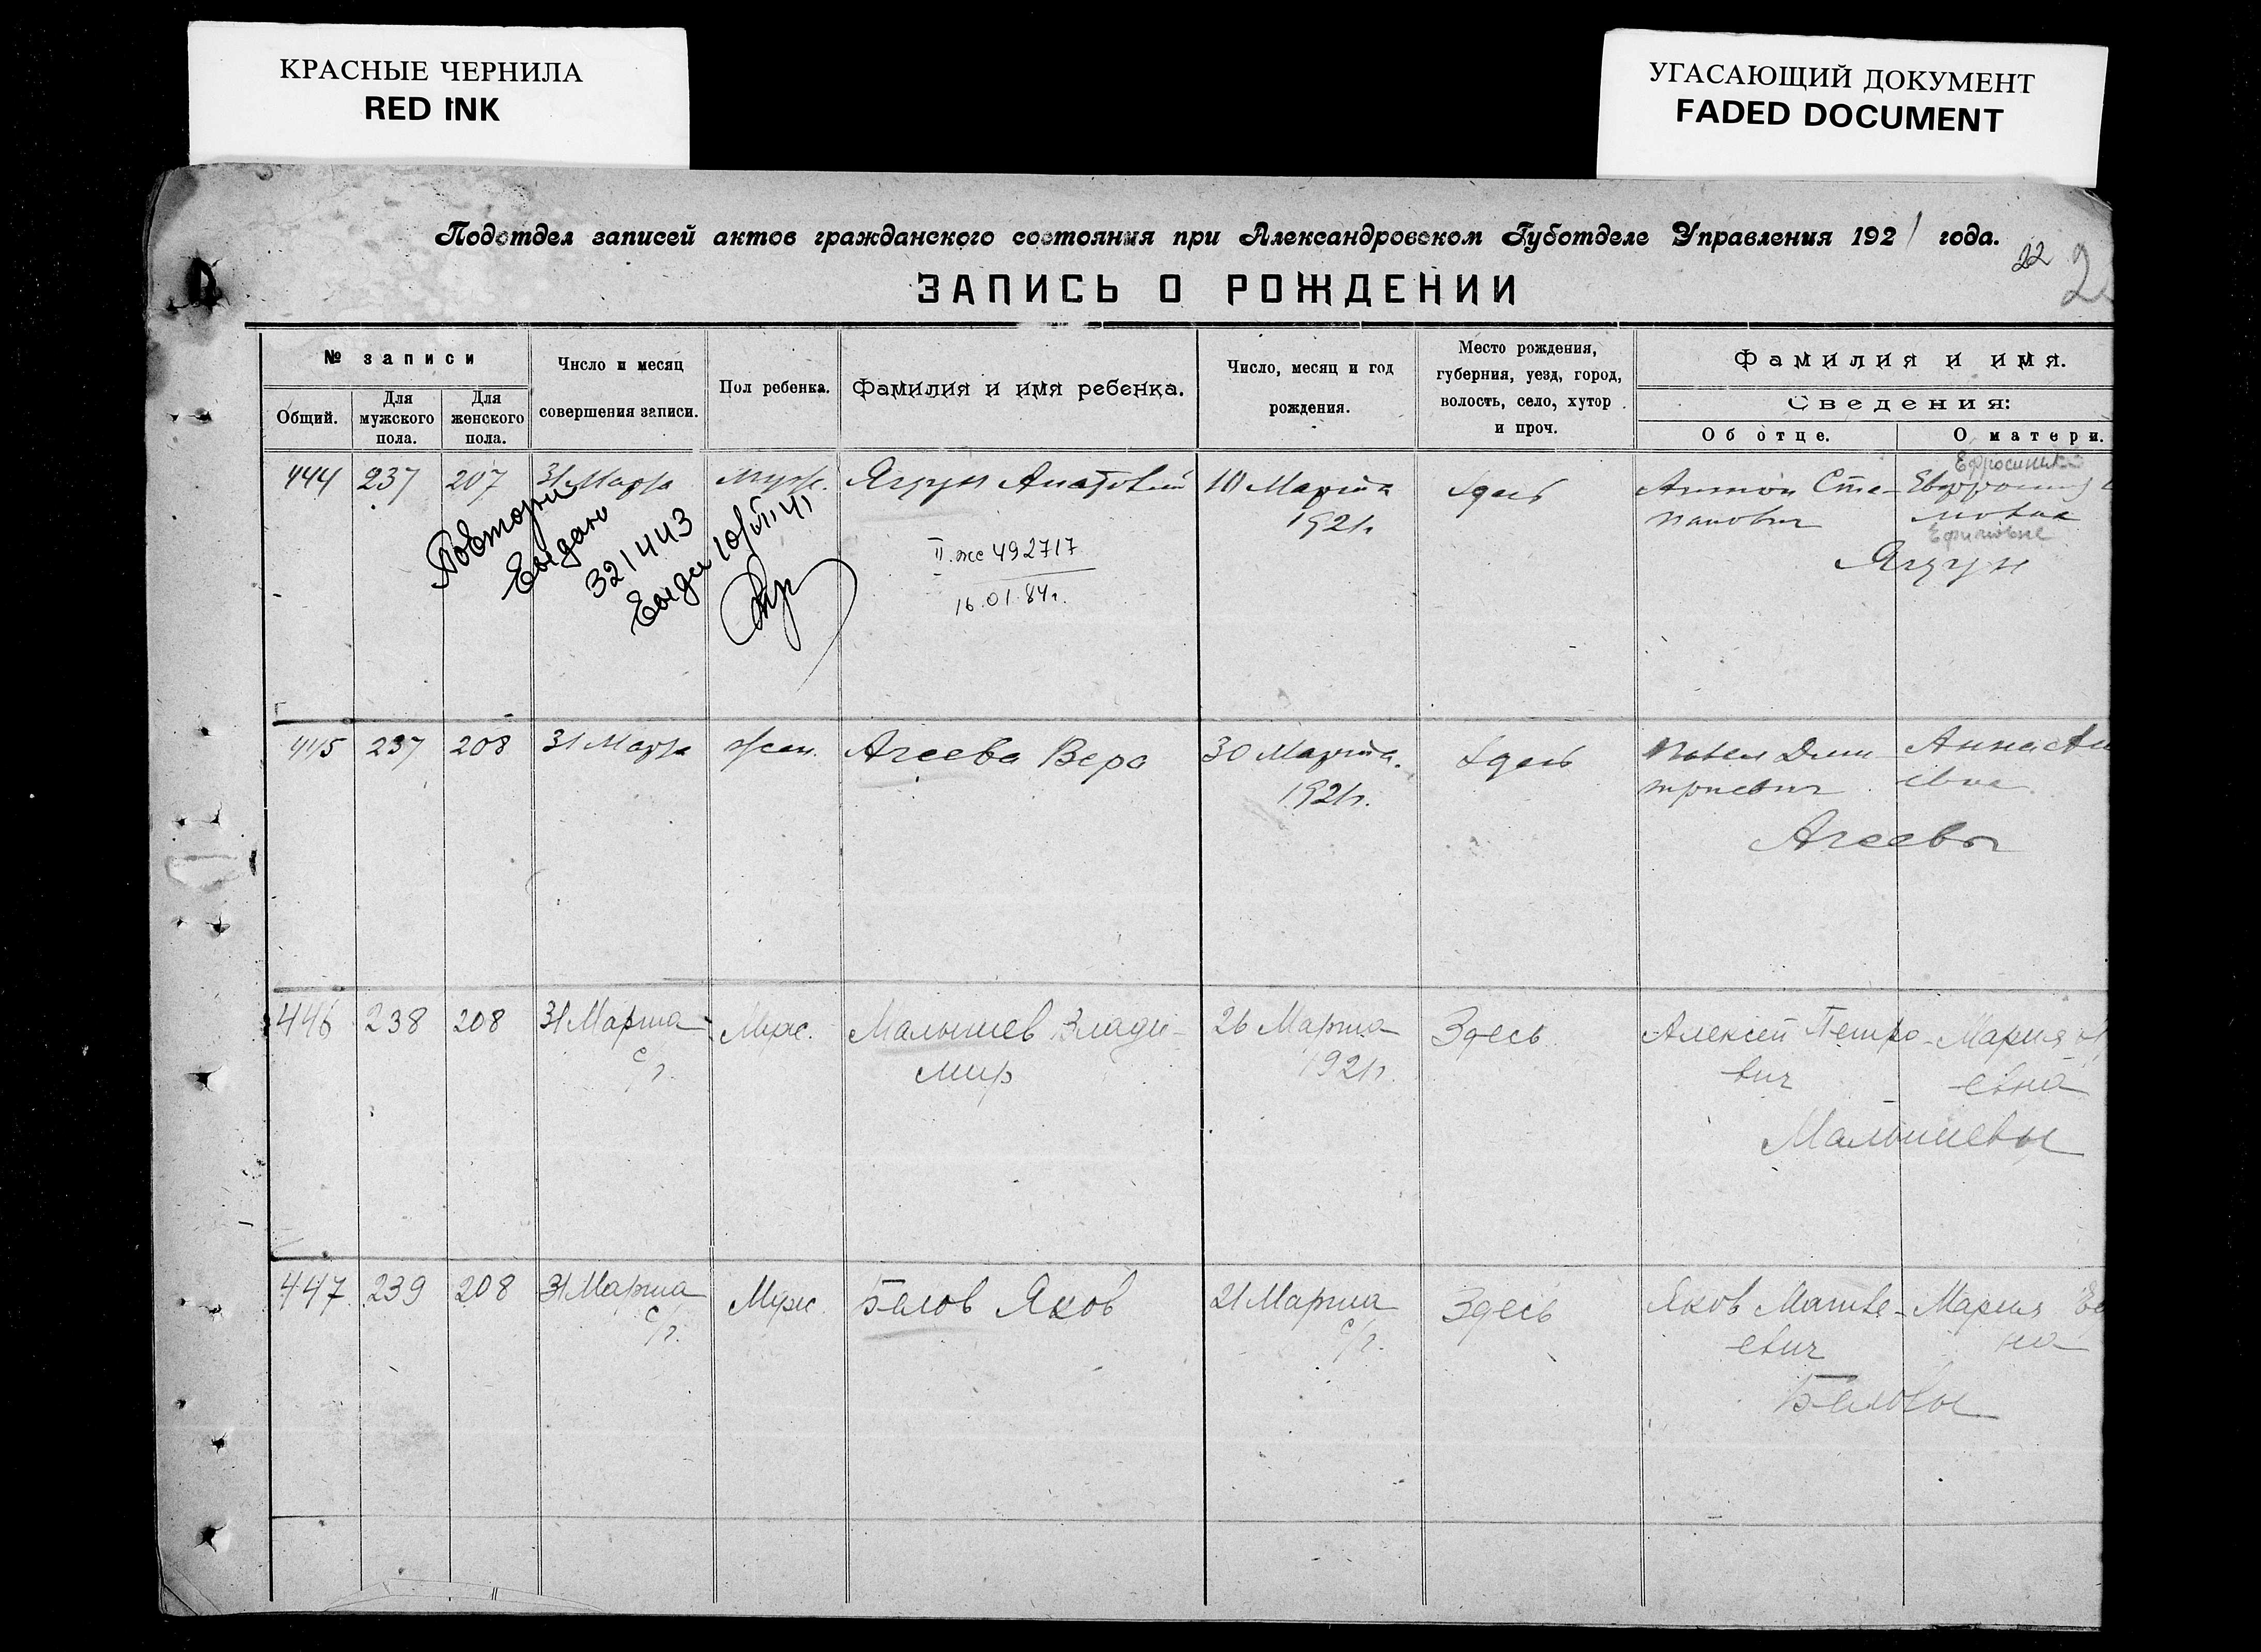 КРАСНЫЕ ЧЕРНИЛА
RED INK
УГАСАЮЩИЙ ДОКУМЕНТ
FADED DOCUMENT
Подотдел записей актов гражданского состояния при Александровском Губотделе Управления 1921 года.
22
2
ЗАПИСЬ О РОЖДЕНИИ
№ записи
Общий.
Для мужского пола.
Для женского пола.
Число и месяц совершения записи.
Пол ребенка.
Фамилия и имя ребенка.
Число, месяц и год рождения.
Место рождения, губерния, уезд, город, волость, село, хутор и проч.
Фамилия и имя.
Сведения:
Об отце.
О матери.
444 237 207 31 Марта муж. Ягдун 10 Марта 1921г. Здесь Антон Степанович
Ефимовне
Ягдун
Повторн
Выдано
321443
II.же 492717
16.01.84г.
445 237 208 31 Марта жен. Агеева Вера 30 Марта 1921г. Здесь Павел Дмитриевич Анна
евна
Агеевы
446 238 208 31 Марта с/г. Муж. Малышев Владимир 26 Марта 1921г. Здесь Алексей Петрович Мария
евна
Малышевы
447 239 208 31 Марта с/г. Муж. Белов Яков 21 Марта с/г. Здесь Яков Матвеевич Мария
на
Беловы